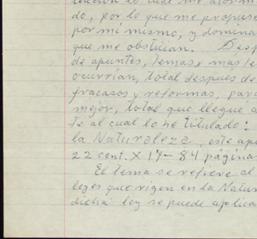 do, por lo que me propuse
por mí mismo, y domina
que me obstruían. Desp
de apuntes, temas, mas te
ocurrían, total después de
fracasos y reformas, par
mejor, total que llegué a
Is al cual lo he titulado:
la Naturaleza, este apu
22 cent. X 17 - 84 página
El tema se refiere al
leyes que rigen en la Natur
dicha ley se puede aplica